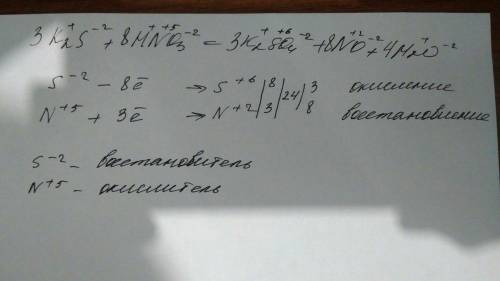 3K₂⁺S⁻² + 8H⁺N⁺⁵O₃⁻² = 3K₂⁺S⁺⁶O₄⁻² + 8N⁺²O⁻² + 4H₂⁺O⁻²
S⁻² - 8ē → S⁺⁶ | 8 | 24 | 3 окисление
N⁺⁵ + 3ē → N⁺² | 3 | 8 восстановление
S⁻² - восстановитель
N⁺⁵ - окислитель